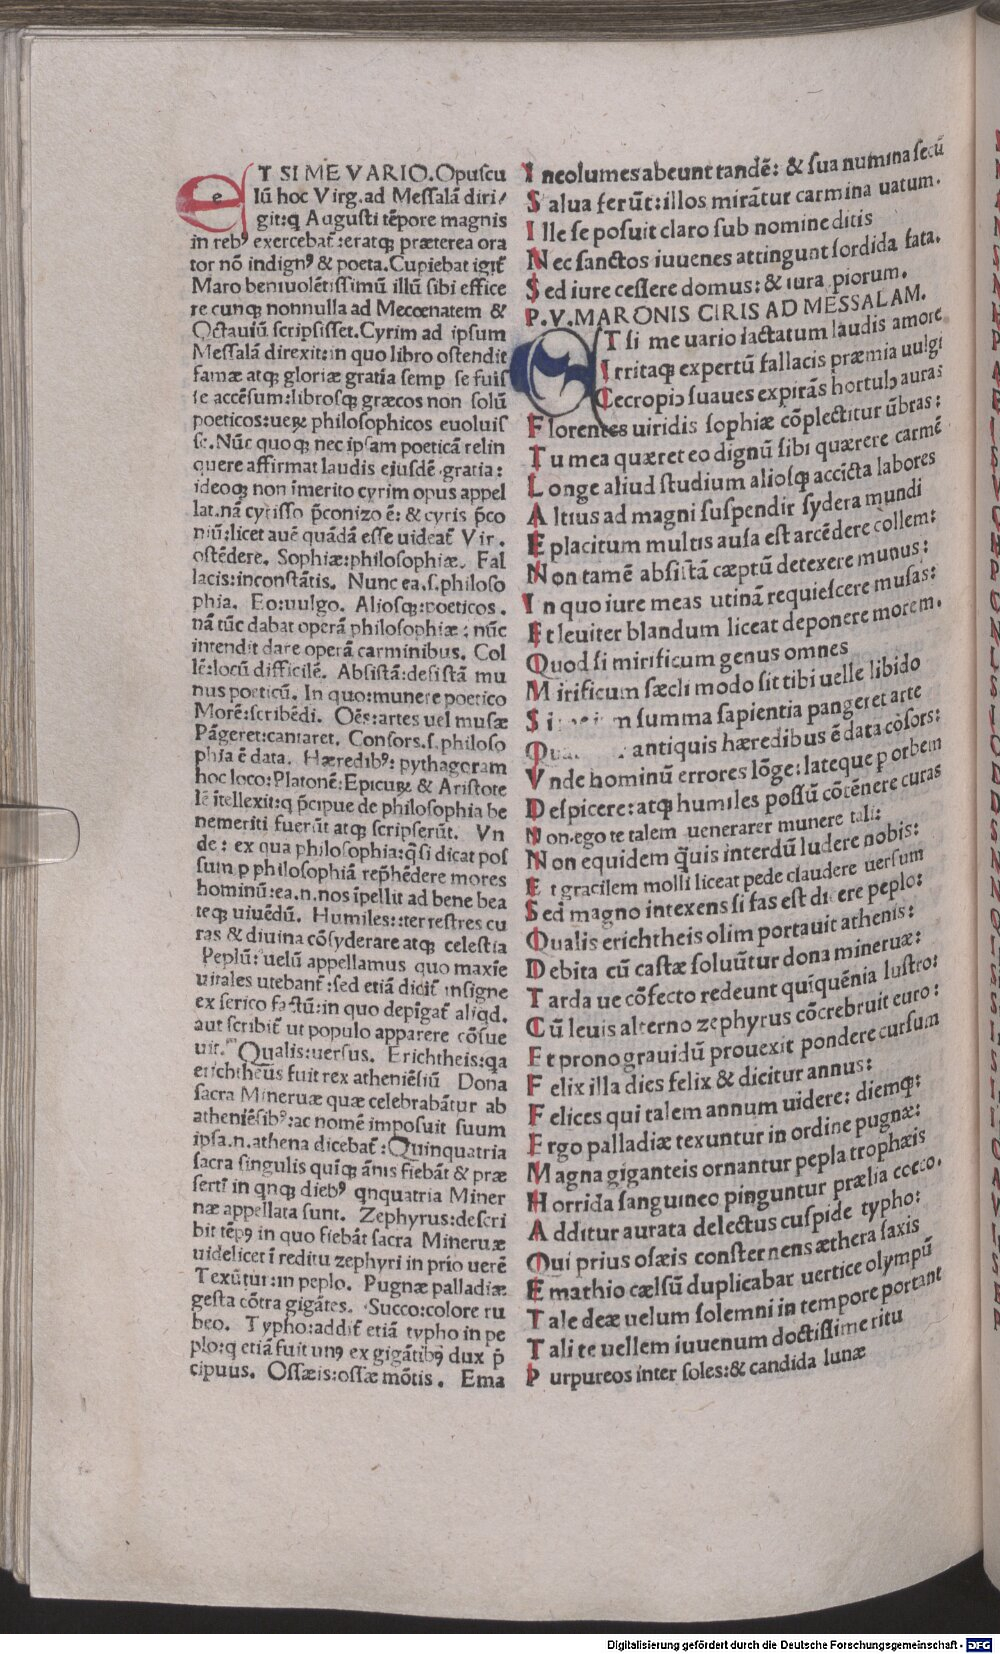 eT SI ME VARIO. Opuscu
lū hoc Virg. ad Messalā diri/
git: q Augusti tēpore magnis
in reb⁹ exercebat̄: eratqꝫ præterea ora
tor nō indign⁹ & poeta. Cupiebat igit̄
Maro beniuolētissimū illū sibi effice
re cunqꝫ nonnulla ad Mecœnatem &
Octauiū scripsisset. Cyrim ad ipsum
Messalā direxit: in quo libro ostendit
famæ atqꝫ gloriæ gratīa semp se fuis
se accēsum: librosqꝫ græcos non solū
poeticos: ueꝝ philosophicos euoluis
se. Nūc quoqꝫ nec ipsam poeticā relin
quere affirmat laudis eiusdē gratia:
ideoqꝫ non īmerito cyrim opus appel
lat. nā cyrisso p̄conizo ē: & cyris p̄co
niū: licet auē quādā esse uideat̄ Vir.
ostēdere. Sophiæ: philosophiæ. Fal
lacis: inconstātis. Nunc ea. s. philoso
phia. Eo: uulgo. Aliosqꝫ: poeticos.
nā tūc dabat operā philosophiæ: nūc
intendit dare operā carminibus. Col
lē: locū difficilē. Absistā: desistā mu
nus poeticū. In quo: munere poetico
Morē: scribēdi. Oēs: artes uel musæ
Pāgeret: cantaret. Consors. s. philoso
phia ē data. Hæredib⁹: pythagoram
hoc loco: Platonē: Epicuꝝ & Aristote
lē ītellexit: q p̄cipue de philosophia be
nemeriti fuerūt atqꝫ scripserūt. Vn
de: ex qua philosophia: q̄si dicat pos
sum ꝑ philosophiā rep̄hēdere mores
hominū: ea. n. nos īpellit ad bene bea
teqꝫ uiuēdū. Humiles: terrestres cu
ras & diuina cōsyderare atqꝫ celestia
Peplū: uelū appellamus quo maxīe
uitales utebant̄: sed etiā dicit̄ insigne
ex serico factū: in quo depīgat̄ aliqd.
aut scribit̄ ut populo apparere cōsue
uit. Qualis: uersus. Erichtheis: qa
erichtheus fuit rex atheniēsiū Dona
sacra Mineruæ quæ celebrabātur ab
atheniēsib⁹: ac nomē imposuit suum
ipsa. n. athena dicebat̄: Quinquatria
sacra singulis quīqꝫ ānis fiebāt & præ
sertī in qnqꝫ dieb⁹ qnquatria Miner
næ appellata sunt. Zephyrus: descri
bit tēpꝯ in quo fiebāt sacra Mineruæ
uidelicet ī reditu zephyri in prīo uerē
Texūtur: in peplo. Pugnæ palladiæ
gesta cōtra gigātes. Succo: colore ru
beo. Typho: addit̄ etiā typho in pe
plo: q etiā fuit unꝯ ex gigātibꝯ dux p̄
cipuus. Ossæis: ossæ mōtis. Ema
I ncolumes abeunt tandē: & sua numina secū
S alua ferūt: illos mirātur carmina uatum.
I lle se posuit claro sub nomine ditis
N ec sanctos iuuenes attingunt sordida fata.
S ed iure cessere domus: & iura piorum.
P. V. MARONIS CIRIS AD MESSALAM.
ET si me uario iactatum laudis amore
I rritaqꝫ expertū fallacis præmia uulgi
C ecropiꝰ suaues expirās hortulꝰ auras
F lorentes uiridis sophiæ cōplectitur ūbras:
T u mea quæret eo dignū sibi quærere carmē
L onge aliud studium aliosqꝫ accīcta labores
A ltius ad magni suspendit sydera mundi
E placitum multis ausa est arcēdere collem:
N on tamē absistā cæptū detexere munus:
I n quo iure meas utinā requiescere musas:
E t leuiter blandum liceat deponere morem.
Q uod si mirificum genus omnes
M irificum sæcli modo sit tibi uelle libido
S i m summa sapientia pangeret arte
Qua antiquis hæredibus ē data cōsors:
V nde hominū errores lōge: lateque ꝑ orbem
D espicere: atqꝫ humiles possū cōtēnere curas
N on. ego te talem uenerarer munere tali:
N on equidem q̄uis interdū ludere nobis:
E t gracilem molli liceat pede claudere uersum
S ed magno intexens si fas est di ere peplo:
Q ualis erichtheis olim portauit athenis:
D ebita cū castæ soluūtur dona mineruæ:
T arda ue cōfecto redeunt quīquēnia lustro:
C ū leuis alterno zephyrus cōcrebruit euro:
E t prono grauidū prouexit pondere cursum
F elix illa dies felix & dicitur annus:
F elices qui talem annum uidere: diemqꝫ:
E rgo palladiæ texuntur in ordine pugnæ:
M agna giganteis ornantur pepla trophæis
H orrida sanguineo pinguntur prælia cocco.
A dditur aurata delectus cuspide typho:
Q ui prius osæis consternens æthera saxis
E mathio cælsū duplicabat uertice olympū
T ale deæ uelum solemni in tempore portant
T ali te uellem iuuenum doctissime ritu
P urpureos inter soles: & candida lunæ
Digitalisierung gefördert durch die Deutsche Forschungsgemeinschaft - DFG